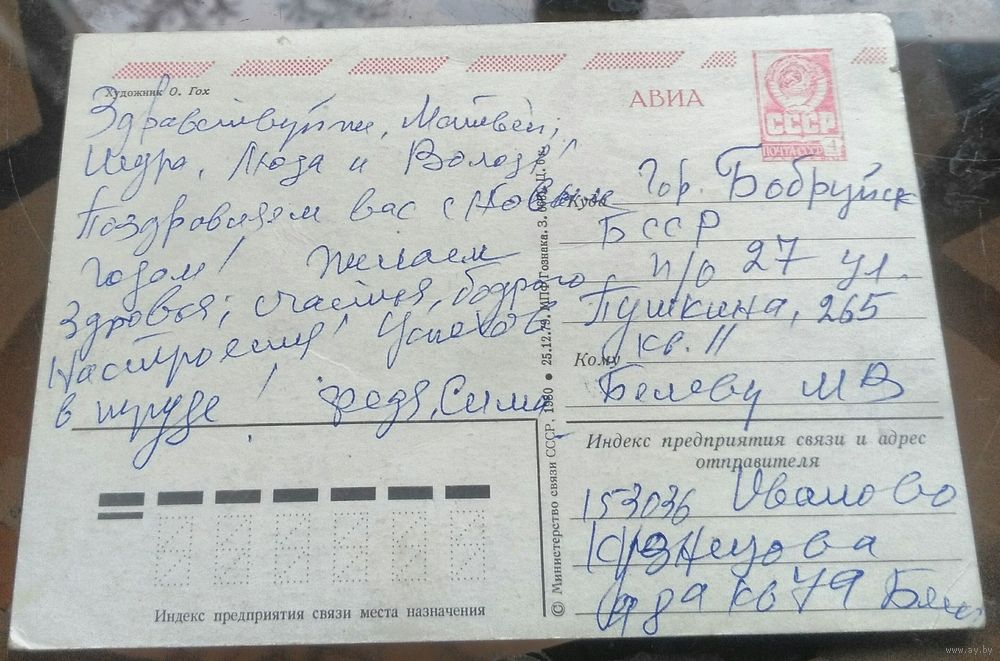 Художник О. Гох
АВИА
СССР
ПОЧТА СССР 4
Здравствуйте, Матвей,
Люда и Володя!
Поздравляем вас с Новым
годом! Желаем
здоровья, счастья, бодрого
настроения! Успехов
в труде! Федя, Сима
Куда Гор. Бобруйск
БССР
п/о 27 ул.
Пушкина, 265
кв. 11
Кому
Белеву МВ
Индекс предприятия связи и адрес
отправителя
153036 Иваново
Кузнецова
кв 79
Индекс предприятия связи места назначения
© Министерство связи СССР. 1980 ● 25.12.79. МПФ Гознака. З.
www.ay.by